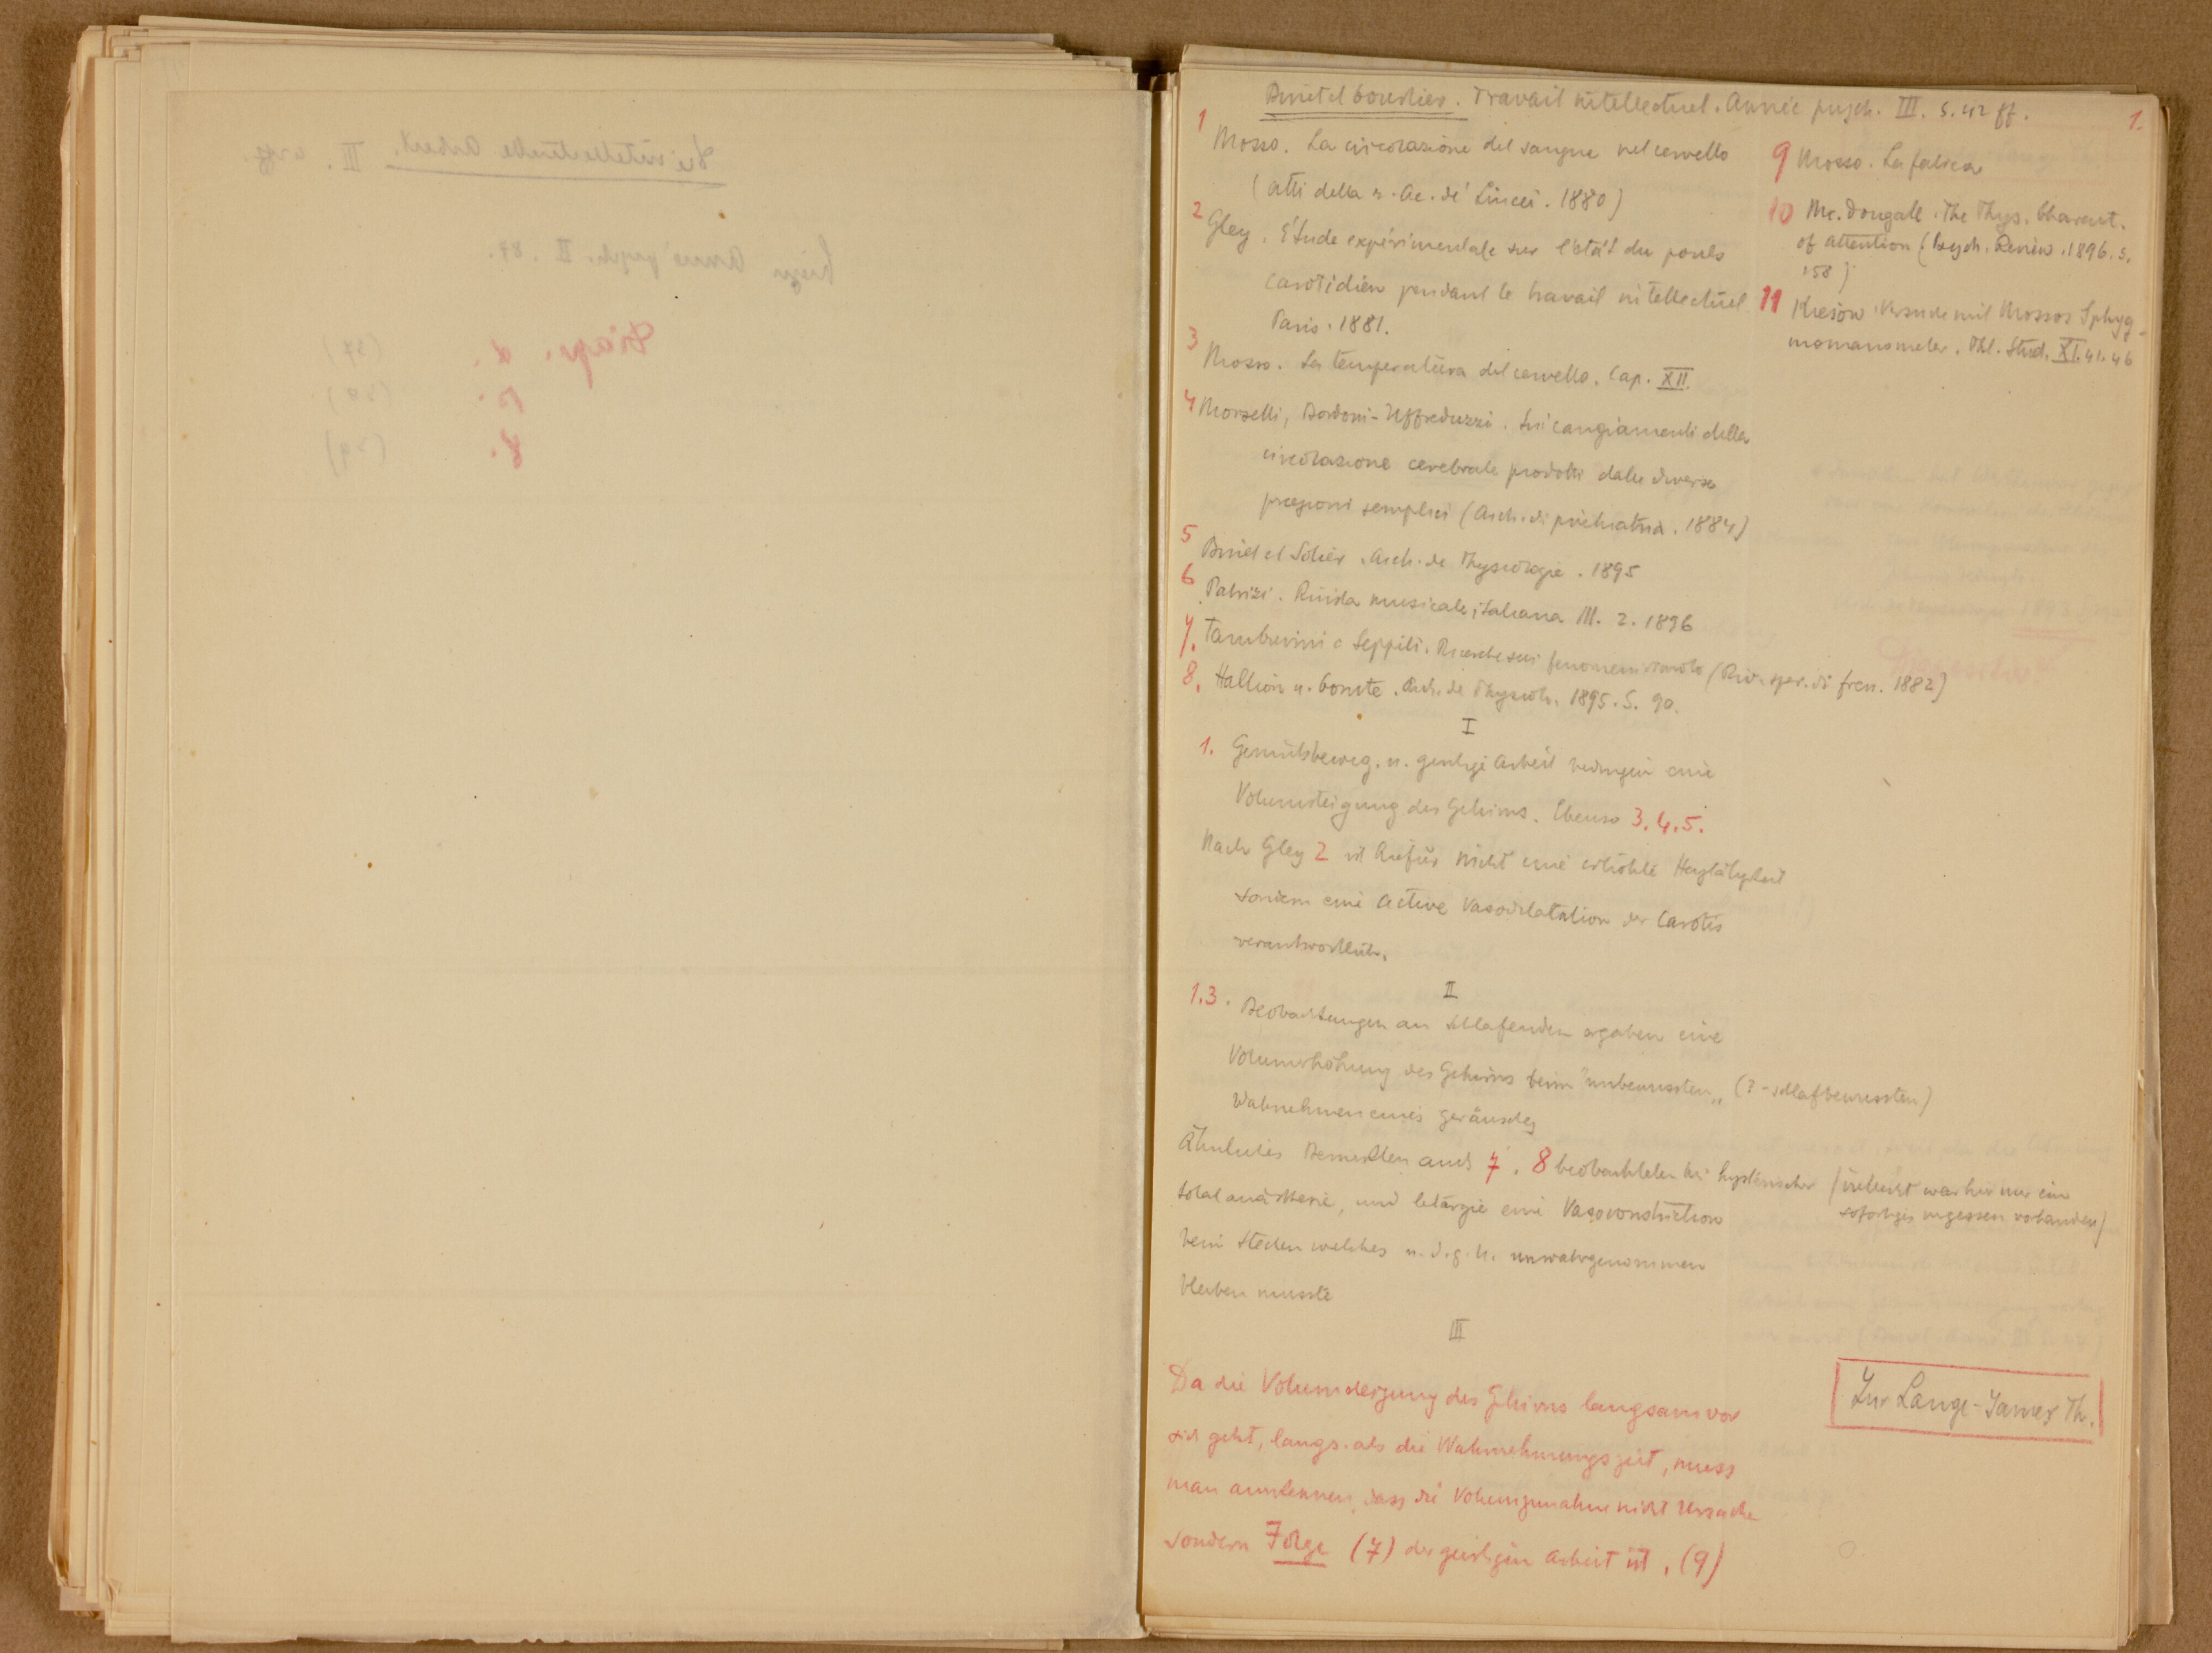 1.
Binet et Courtier. Travail intellectuel. Année psych. III. S. 42 ff.
1 Mosso. La circolazione del sangue nel cervello
(Atti della r. Ac. de' Lincei. 1880)
2 Gley. Étude expérimentale sur l'état du pouls
carotidien pendant le travail intellectuel
Paris. 1881.
3 Mosso. La temperatura del cervello. Cap. XII.
4 Morselli, Bordoni-Uffreduzzi. Sui cangiamenti della
circolazione cerebrale prodotti dalle diverse
semplici (Arch. di psichiatria. 1884)
5 Binet et Solier. Arch. de Physiologie. 1895
6 Patrizi. Rivista musicale italiana III. 2. 1896
7. Tamburini e Seppili. Ricerche sui fenomeni (Riv. sper. di fren. 1882)
8. Hallion u. Comte. Arch. de Physiol. 1895. S. 90.
9 Mosso. La fatica
10 Mc. Dougall. The Phys. Charact.
of Attention (Psych. Review. 1896. S.
158)
11 Kiesow. Versuche mit Mossos Sphyg-
momanometer. Phil. Stud. XI. 41. 46
I
1. Gemütsbeweg. u. geistige Arbeit bedingen eine
Volumsteigung des Gehirns. Ebenso 3. 4. 5.
Nach Gley 2 ist hiefür nicht eine erhöhte Herztätigkeit
sondern eine active Vasodilatation der Carotis
verantwortlich.
II
1.3. Beobachtungen an Schlafenden ergaben eine
Volumerhöhung des Gehirns beim "unbewussten„ (? - schlafbewussten)
Wahrnehmen eines Geräusches
Ähnliches Bemerkten auch 7. 8 beobachteten bei hysterischer (vielleicht war hier nur ein
sofortiges vergessen vorhanden)
totalanästhesie, und letargie eine Vasoconstriction
beim Stechen welches u. d. g. U. unwahrgenommen
bleiben musste
III
Da die Volumsteigung des Gehirns langsam vor
sich geht, langs. als die Wahrnehmungszeit, muss
man annehmen, dass die Volumzunahme nicht Ursache
sondern Folge (7) der geistigen Arbeit ist. (9)
Zur Lange-James Th.